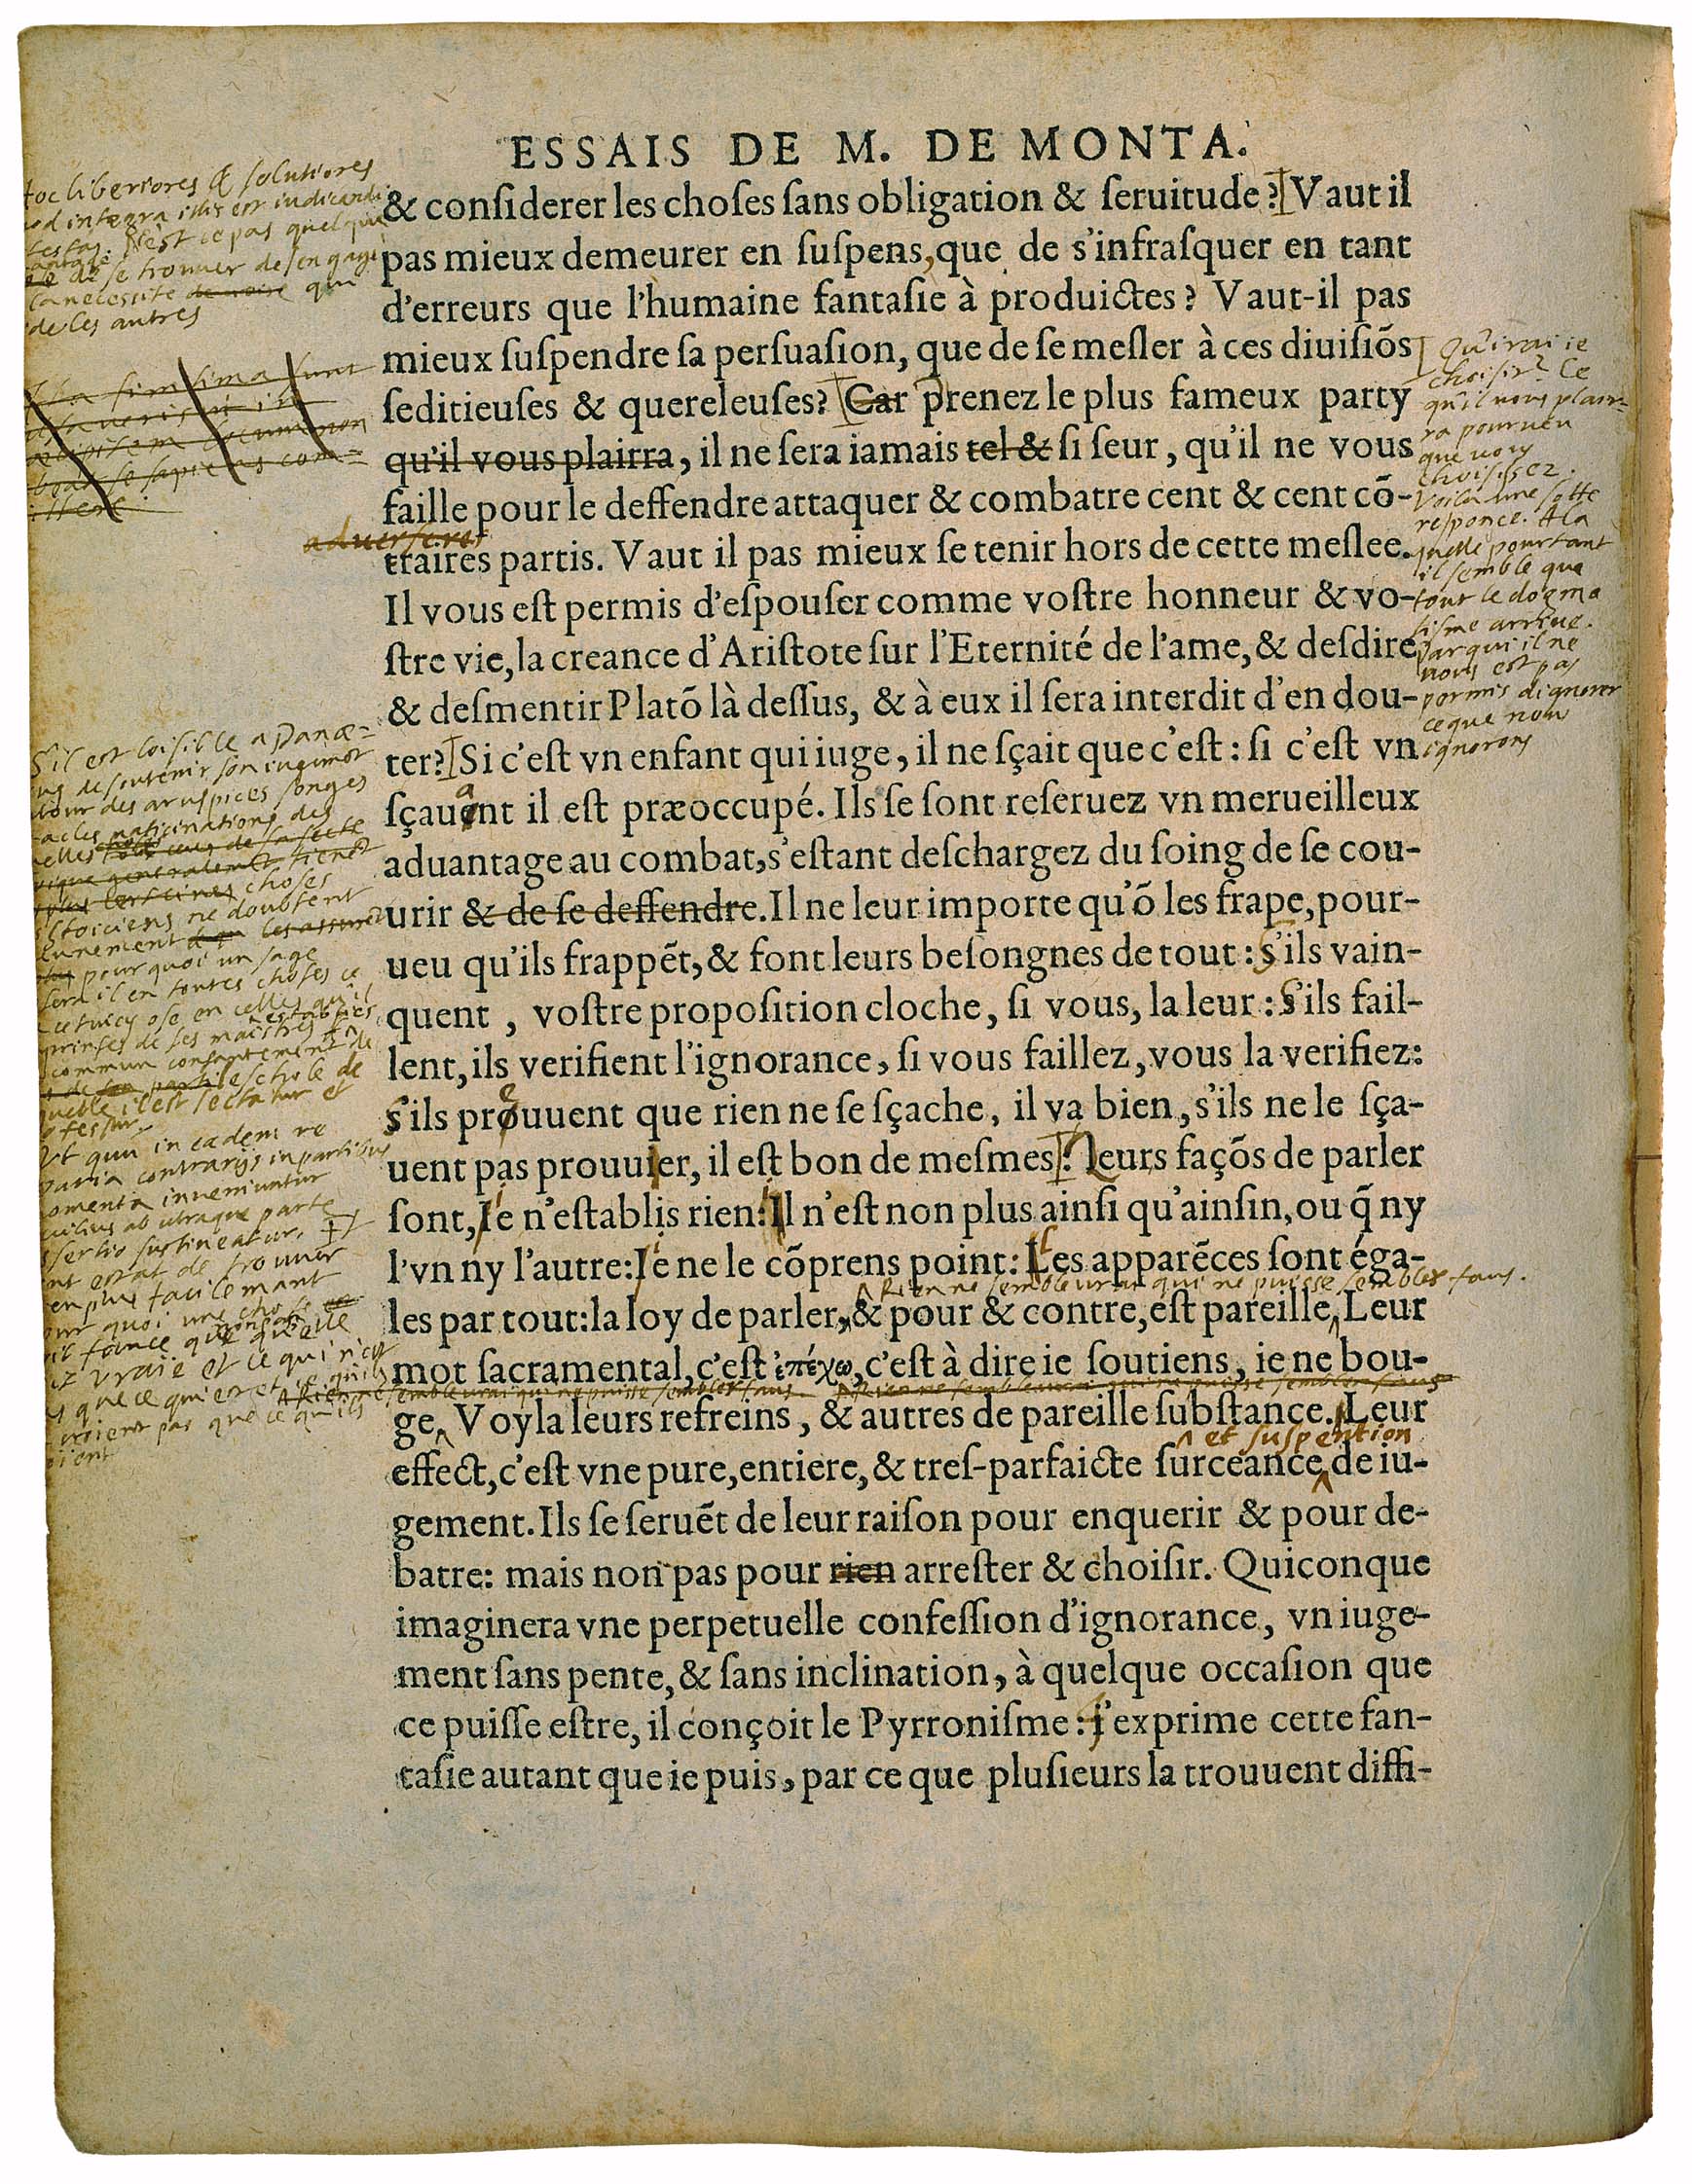 ESSAIS DE M. DE MONTA.
& conſiderer les choſes ſans obligation & ſeruitude? Vaut il
pas mieux demeurer en ſuſpens, que de s'infraſquer en tant
d'erreurs que l'humaine fantaſie à produictes? Vaut-il pas
mieux ſuſpendre ſa perſuaſion, que de ſe meſler à ces diuiſiõs
ſeditieuſes & quereleuſes? Car prenez le plus fameux party
qu'il vous plairra, il ne ſera iamais tel & ſi ſeur, qu'il ne vous
faille pour le deffendre attaquer & combatre cent & cent cõ-
aduerseres
traires partis. Vaut il pas mieux ſe tenir hors de cette meſlee.
Il vous eſt permis d'eſpouſer comme voſtre honneur & vo-
ſtre vie, la creance d'Ariſtote ſur l'Eternité de l'ame, & deſdire
& deſmentir Platõ là deſſus, & à eux il ſera interdit d'en dou-
ter? Si c'eſt vn enfant qui iuge, il ne ſçait que c'eſt: ſi c'eſt vn
ſçauant il eſt præoccupé. Ils ſe ſont reſeruez vn merueilleux
aduantage au combat, s'eſtant deſchargez du ſoing de ſe cou-
urir & de ſe deffendre. Il ne leur importe qu'õ les frape, pour-
ueu qu'ils frappẽt, & font leurs beſongnes de tout: s'ils vain-
quent, voſtre propoſition cloche, ſi vous, la leur: S'ils fail-
lent, ils verifient l'ignorance, ſi vous faillez, vous la verifiez:
s'ils preuuent que rien ne ſe ſçache, il va bien, s'ils ne le ſça-
uent pas prouuer, il eſt bon de meſmes. Leurs façõs de parler
ſont, Ie n'eſtablis rien: Il n'eſt non plus ainſi qu'ainſin, ou q̃ ny
l'vn ny l'autre: Ie ne le cõprens point: Les apparẽces ſont éga-
Rien ne semble vrai qui ne puisse sembler faus.
les par tout: la loy de parler, & pour & contre, eſt pareille, Leur
mot ſacramental, c'eſt ἐπέχω, c'eſt à dire ie ſoutiens, ie ne bou-
Rien ne semble vrai qui ne puisse sembler faus. Rien ne semble vrai qui ne puisse sembler faus
ge, Voyla leurs refreins, & autres de pareille ſubſtance. Leur
et suspention
effect, c'eſt vne pure, entiere, & treſ-parfaicte ſurceance de iu-
gement. Ils ſe ſeruẽt de leur raiſon pour enquerir & pour de-
batre: mais non pas pour rien arreſter & choiſir. Quiconque
imaginera vne perpetuelle confeſſion d'ignorance, vn iuge-
ment ſans pente, & ſans inclination, à quelque occaſion que
ce puiſſe eſtre, il conçoit le Pyrroniſme: i'exprime cette fan-
taſie autant que ie puis, par ce que pluſieurs la trouuent diffi-
hoc liberiores & solutiores
integra illis est iudicandi
testas. N'est ce pas quelque
de se trouuer desengagé
la necessite qui
de les autres
Qu'irai ie
choisir? Ce
qu'il vous plair-
ra pourueu
que vous
choisissez.
Voila une sotte
responce. A la
quelle pourtant
il semble que
tout le dogma
tisme arriue.
Par qui il ne
nous est pas
permis d'ignorer
ce que nous
ignorons
S'il est loisible a Panæ-
de soutenir son iugemet
tour des aruspices songes
vaticinations des
choses
stoiciens ne doubtent
pour quoi un sage
sera il en toutes choses ce
cetuicy ose en celles qu'il
establies
prinses de ses maistres
commun consantement de
eschole de
quelle il est sectatur et
Ut quū in eadem re
paria contrarijs in partibus
momenta inueniuntur
ab utraque parte
assertio sustineatur.
estat de trouuer
plus facilemant
pour quoi une chose
faulce que
vraie et ce qui n'est
que ce qui est et ce qu'ils
croient pas que ce qu'ils